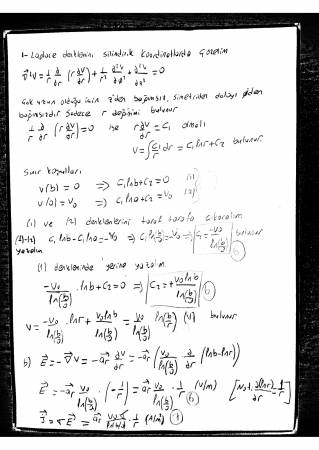 1- Laplace denklemini silindirik koordinatlarda çözelim
∇²V = 1/r ∂/∂r (r ∂V/∂r) + 1/r² ∂²V/∂ø² + ∂²V/∂z² = 0
Çok uzun olduğu için z'den bağımsız, simetriden dolayı ø'den
bağımsızdır. Sadece r değişimi bulunur
1/r d/dr (r dV/dr) = 0 ise r dV/dr = C₁ olmalı
V = ∫ C₁/r dr = C₁ lnr + C₂ bulunur.
Sınır koşulları
V(b) = 0 ⇒ C₁ lnb + C₂ = 0 (1)
V(a) = V₀ ⇒ C₁ lna + C₂ = V₀ (2)
(1) ve (2) denklemlerini taraf tarafa çıkaralım
C₁ lnb - C₁ lna = -V₀ ⇒ C₁ ln(b/a) = -V₀ ⇒ C₁ = -V₀/ln(b/a) bulunur
(1) denkleminde yerine yazalım
-V₀/ln(b/a) . lnb + C₂ = 0 ⇒ C₂ = + V₀ lnb/ln(b/a)
V = -V₀/ln(b/a) . lnr + V₀ lnb/ln(b/a) = V₀/ln(b/a) ln(b/r) (V) bulunur
b) E = -∇V = -ar ∂V/∂r = -ar (V₀/ln(b/a) ∂/∂r (lnb - lnr))
E = -ar V₀/ln(b/a) . (-1/r) = ar V₀/ln(b/a) . 1/r (V/m) [Not: ∂(lnr)/∂r = 1/r]
J = σE = ar V₀σ/ln(b/a) . 1/r (A/m²)